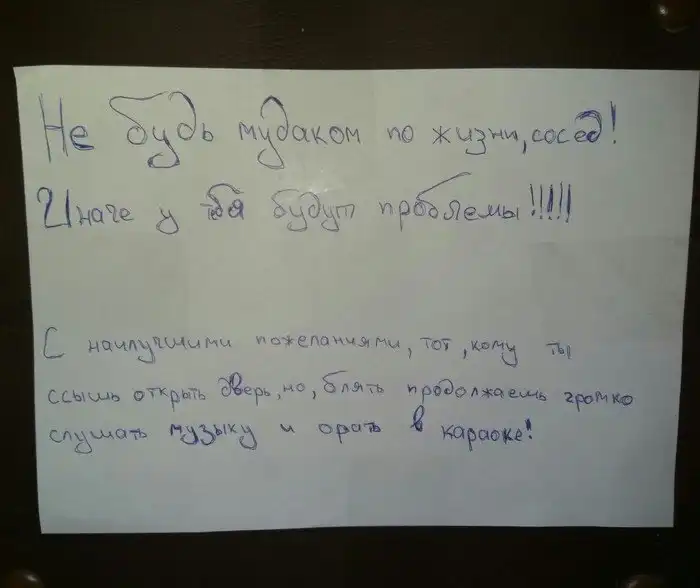 Не будь мудаком по жизни, сосед!
Иначе у тебя будут проблемы!!!!!
С наилучшими пожеланиями, тот, кому ты
ссышь открыть дверь, но, блять продолжаешь громко
слушать музыку и орать в караоке!